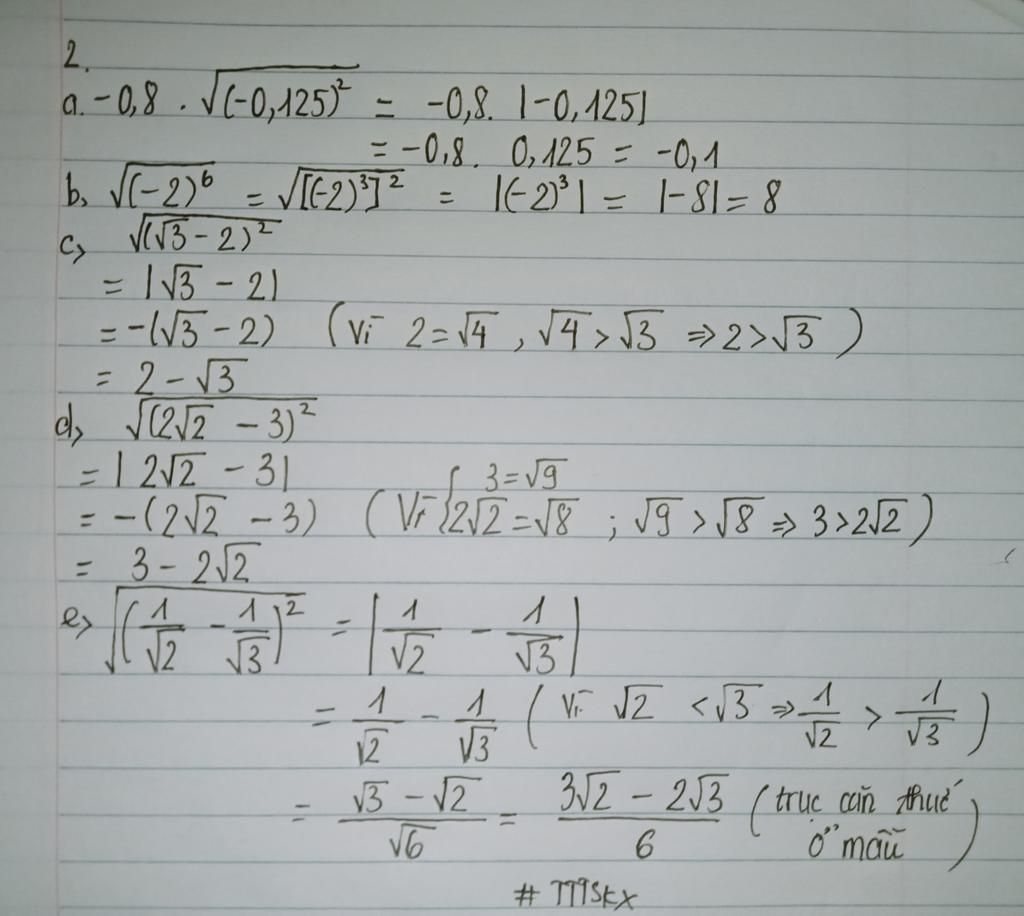 2.
a. -0,8 . √(-0,125)² = -0,8. |-0,125|
= -0,8. 0,125 = -0,1
b, √(-2)⁶ = √[(-2)³]² = |(-2)³| = |-8| = 8
c, √(√3 - 2)²
= |√3 - 2|
= -(√3 - 2) (Vì 2 = √4 , √4 > √3 ⇒ 2 > √3 )
= 2 - √3
d, √(2√2 - 3)²
= | 2√2 - 3|
= -(2√2 - 3) (Vì { 3 = √9 2√2 = √8 ; √9 > √8 ⇒ 3 > 2√2 )
= 3 - 2√2
e, √(1/√2 - 1/√3)² = |1/√2 - 1/√3|
= 1/√2 - 1/√3 ( Vì √2 < √3 ⇒ 1/√2 > 1/√3 )
= (√3 - √2)/√6 = (3√2 - 2√3)/6 ( trục căn thức
ở mẫu )